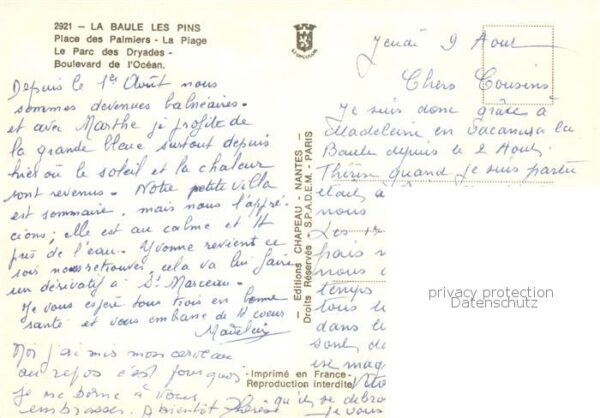 2921 – LA BAULE LES PINS
Place des Palmiers - La Plage
Le Parc des Dryades -
Boulevard de l'Océan.
Depuis le 1er Août nous
sommes devenues balnéaires.
et avec Marthe je profite de
la grande bleue surtout depuis
hier où le soleil et la chaleur
sont revenus. Notre petite villa
est sommaire, mais nous l'appré-
cions; elle est au calme et tt
près de l'eau. Yvonne revient ce
soir nous retrouver, cela va lui faire
un dérivatif à St Marceau.
Je vous espère tous trois en bonne
santé et vous embrasse de tt coeur
Madeleine
Moi j'ai mis mon cerveau
au repos c'est pourquoi
je me borne à vous
embrasser. A bientôt Thérèse
Editions CHAPEAU - NANTES -
Droits Réservés - S.P.A.D.E.M. - PARIS
Imprimé en France
Reproduction interdite
Jeudi 9 Août
Chers Cousins
Je suis donc grâce à
Madeleine en vacances à la
Baule depuis le 2 Août.
Thérèse quand je suis partie
était à
nous
Les
mais
nous
temps
tous le
dans le
sont, d
privacy protection
Datenschutz
qu'ils se débro
Je vous